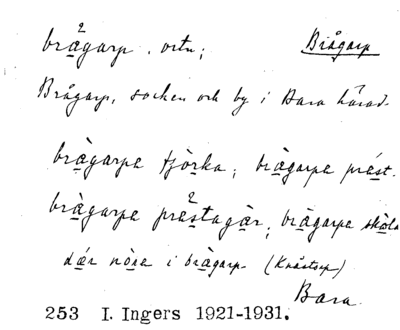 brågarp. ortn; Brågarp
Brågarp, socken och by i Bara härad.
bràgarpa tjörka; bràgarpa präst.
bràgarpa prästagàr; bràgarpa skola
där nöre i bràgarp. (Knästorp)
Bara.
253 I. Ingers 1921-1931.